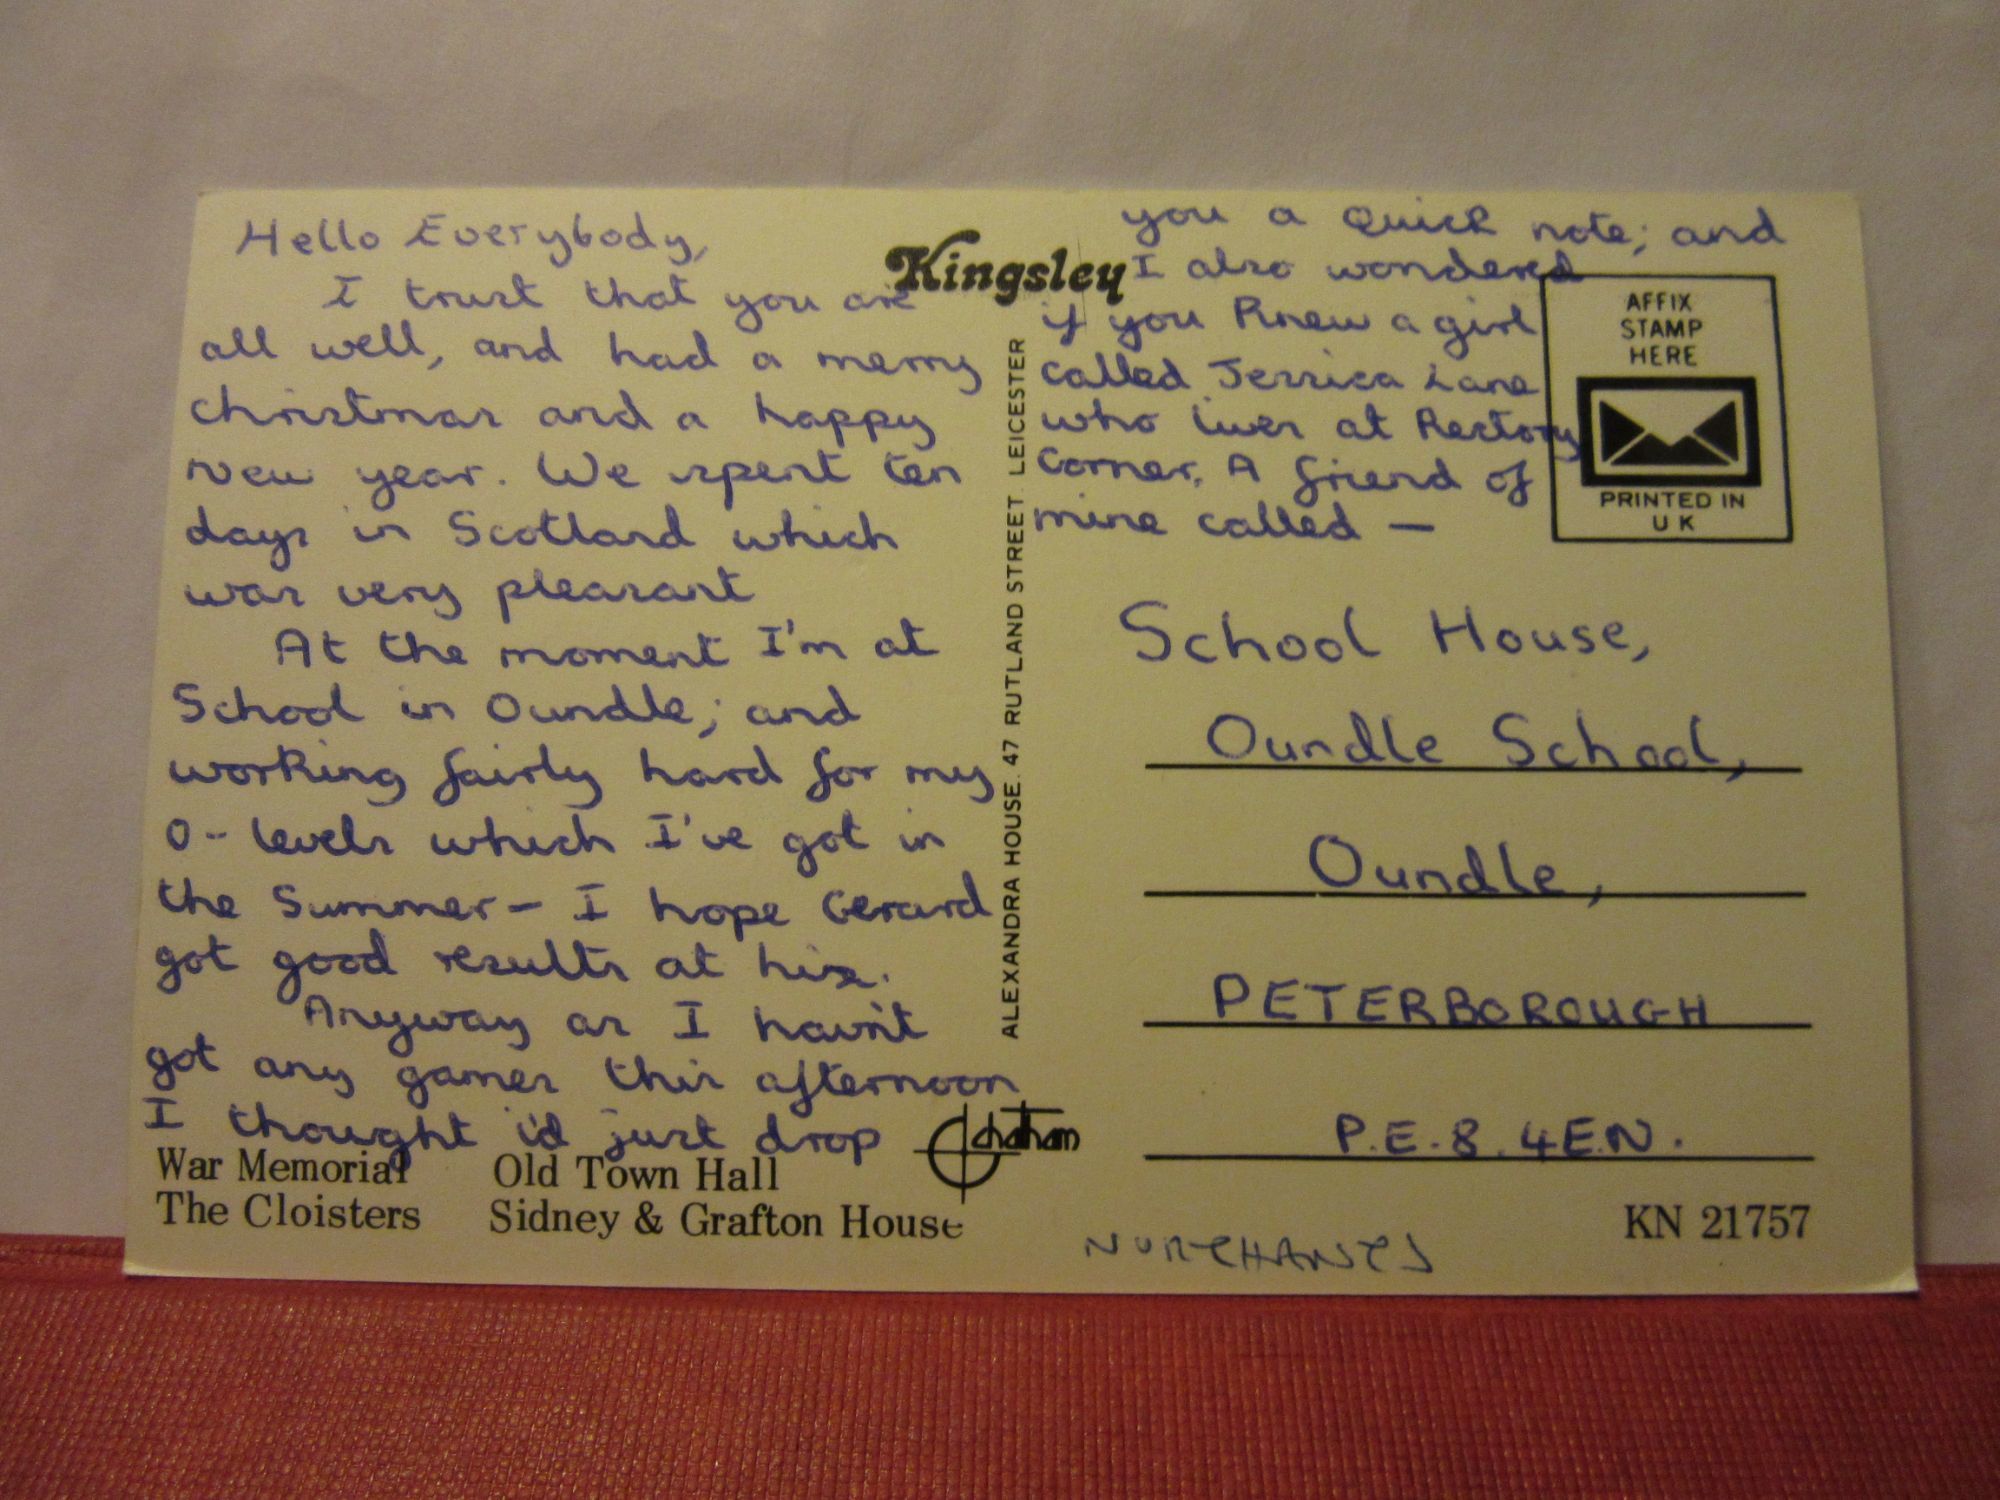 Hello Everybody,
I trust that you are
all well, and had a merry
christmas and a happy
new year. We spent ten
days in Scotland which
was very pleasant
At the moment I'm at
School in Oundle; and
working fairly hard for my
O-levels which I've got in
the Summer - I hope Gerard
got good results at his.
Anyway as I havn't
got any games this afternoon
I thought i'd just drop
War Memorial Old Town Hall
The Cloisters Sidney & Grafton House
Kingsley
ALEXANDRA HOUSE. 47 RUTLAND STREET. LEICESTER
Chatham
you a quick note; and
I also wondered
if you knew a girl
called Jessica Lane
who lives at Rectory
Corner. A friend of
mine called —
AFFIX
STAMP
HERE
PRINTED IN
U K
School House,
Oundle School,
Oundle,
PETERBOROUGH
P.E.8.4E.N.
NORTHANTS
KN 21757